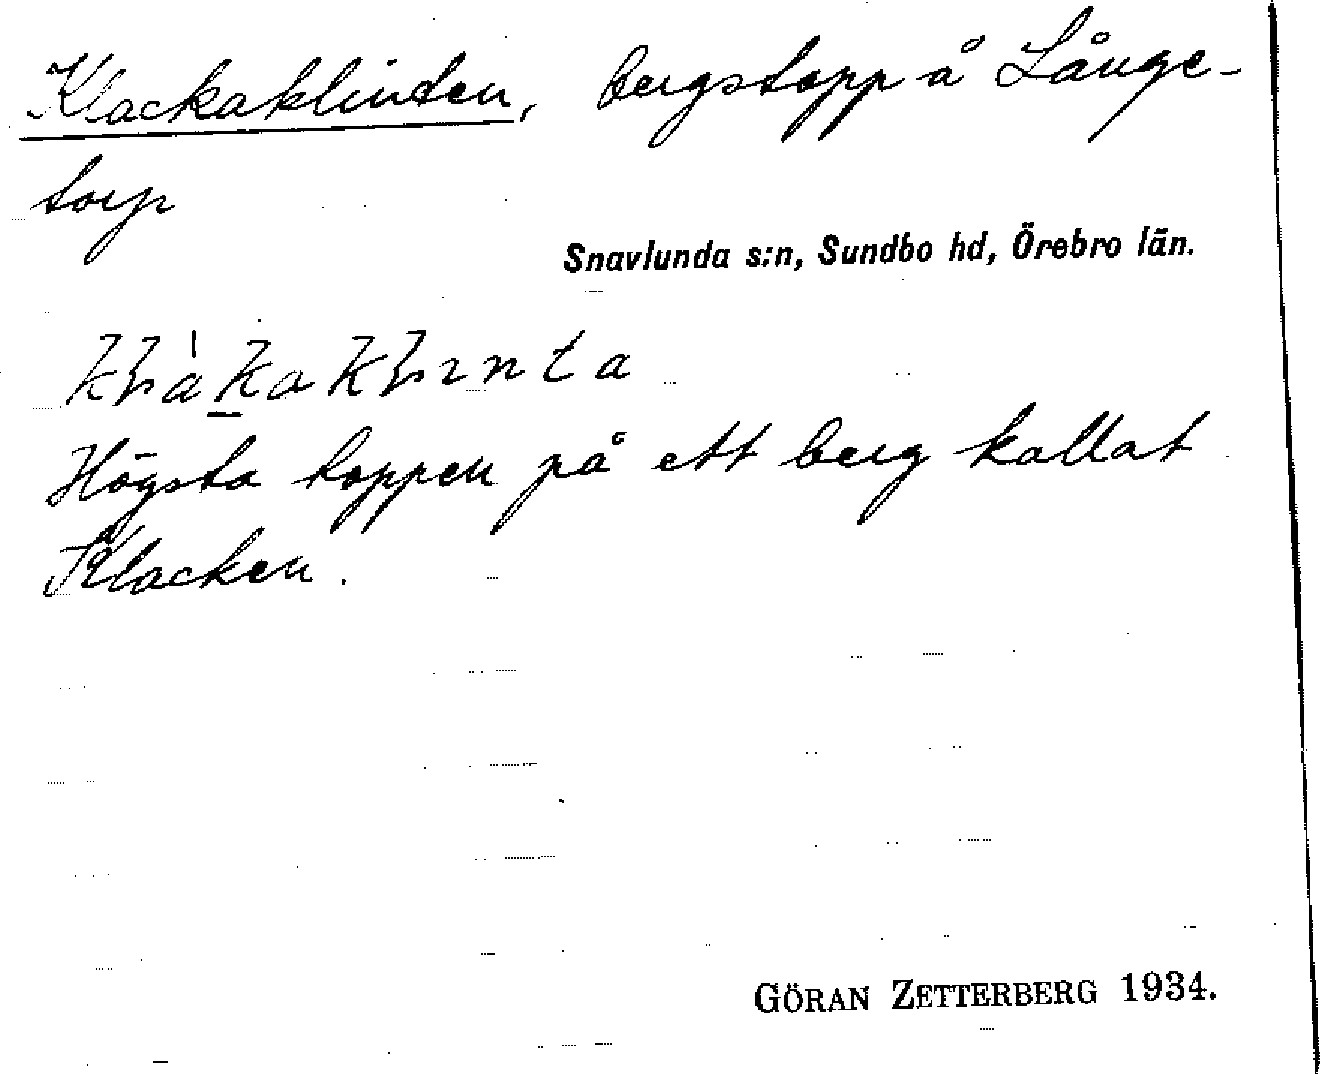 Klackaklinten, bergstopp å Långe-
torp
Snavlunda s:n, Sundbo hd, Örebro län.
Högsta toppen på ett berg kallat
Klacken.
GÖRAN ZETTERBERG 1934.